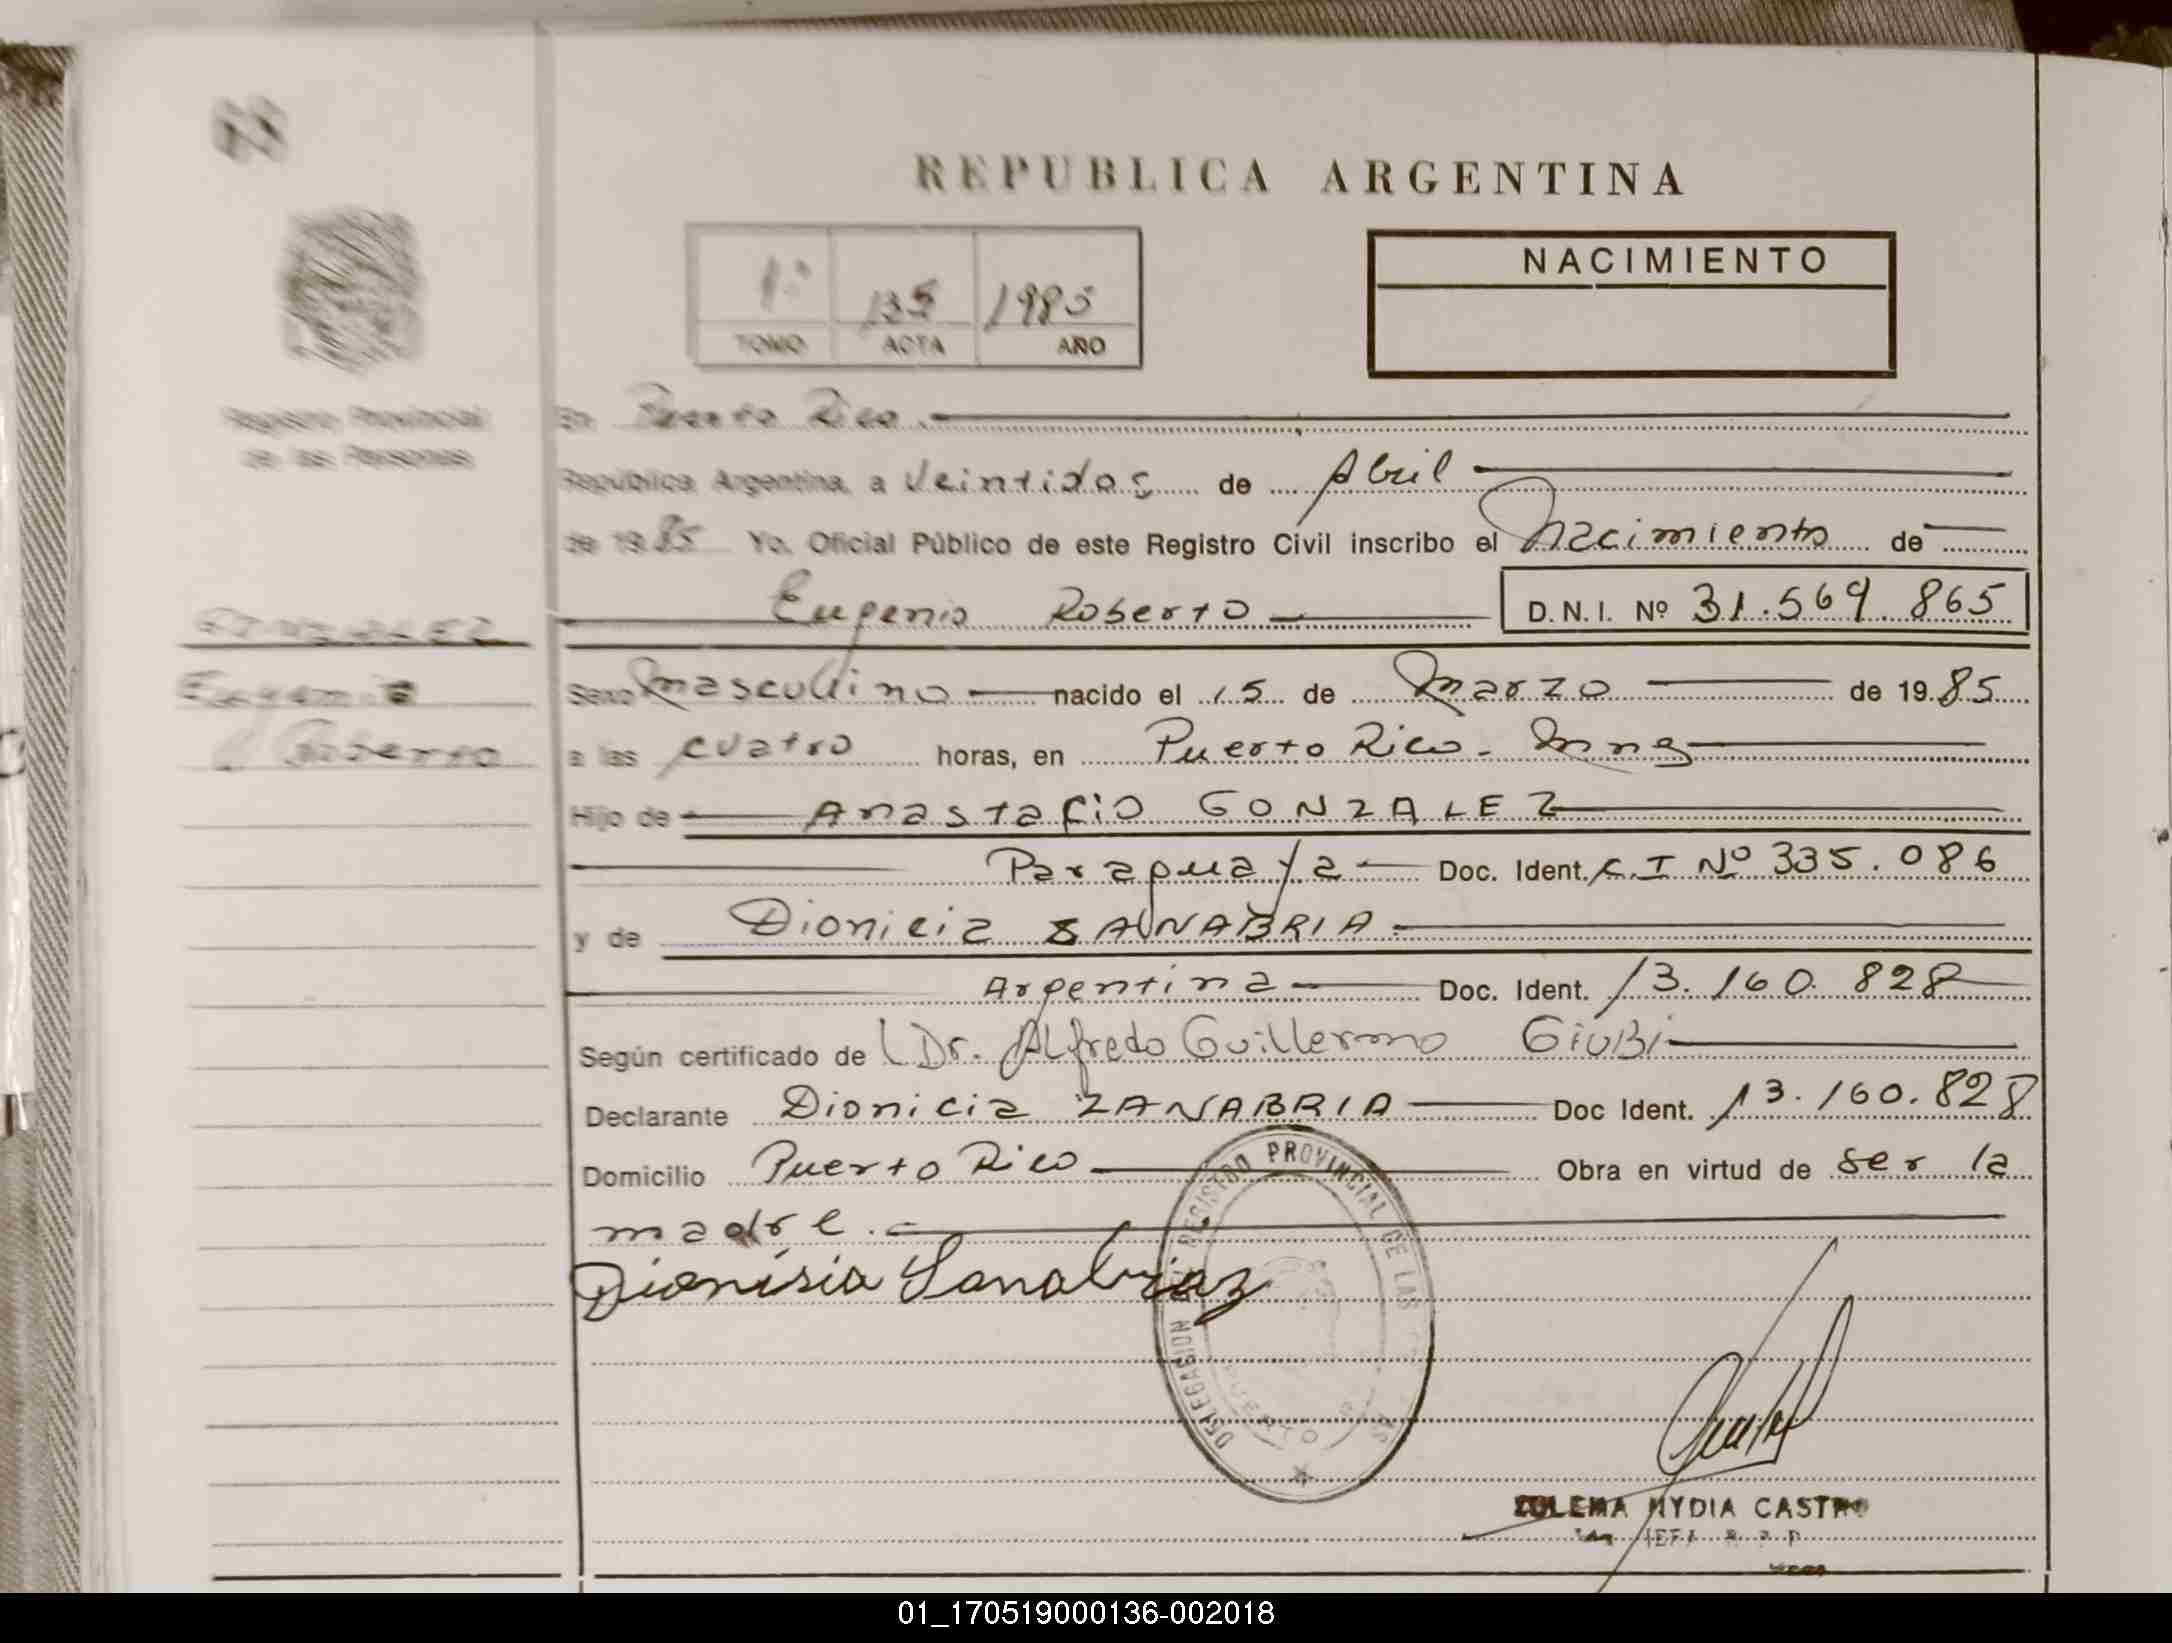 REPUBLICA ARGENTINA
NACIMIENTO
1º 135 1985
TOMO ACTA AÑO
Registro Provincial
de las Personas
En Puerto Rico.
República Argentina, a Veintidos de Abril
de 1985 Yo, Oficial Público de este Registro Civil inscribo el Nacimiento de
Eugenio Roberto D.N.I. Nº 31.569.865
GONZALEZ
Eugenio
Roberto
Sexo Masculino nacido el 15 de Marzo de 1985
a las cuatro horas, en Puerto Rico - Mnes
Hijo de Anastacio GONZALEZ
Paraguaya Doc. Ident. C.I Nº 335.086
y de Dionicia SANABRIA
Argentina Doc. Ident. 13.160.828
Según certificado de Dr. Alfredo Guillermo GIUBI
Declarante Dionicia ZANABRIA Doc Ident. 13.160.828
Domicilio Puerto Rico Obra en virtud de ser la
madre.
Dionisia Sanabria
DELEGACION DEL REGISTRO PROVINCIAL DE LAS
PUERTO
ZULEMA NYDIA CASTRO
01_170519000136-002018